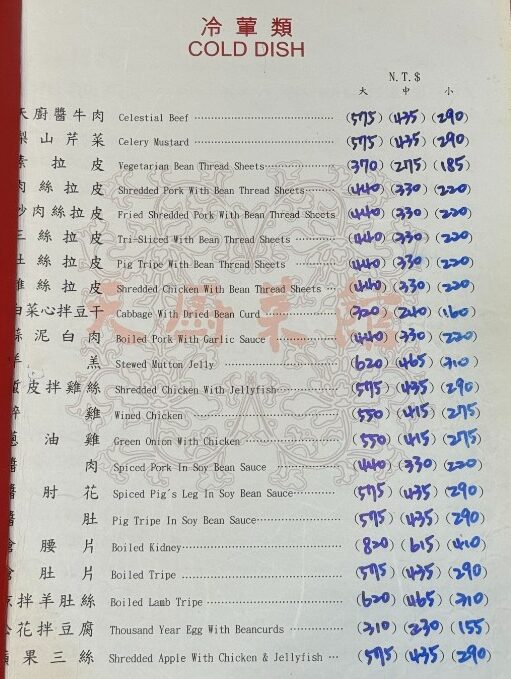 冷葷類
COLD DISH
N.T.$
大 中 小
天廚醬牛肉 Celestial Beef (575) (435) (290)
梨山芹菜 Celery Mustard (575) (435) (290)
素拉皮 Vegetarian Bean Thread Sheets (370) (275) (185)
肉絲拉皮 Shredded Pork With Bean Thread Sheets (440) (330) (220)
炒肉絲拉皮 Fried Shredded Pork With Bean Thread Sheets (440) (330) (220)
三絲拉皮 Tri-Sliced With Bean Thread Sheets (440) (330) (220)
肚絲拉皮 Pig Tripe With Bean Thread Sheets (440) (330) (220)
雞絲拉皮 Shredded Chicken With Bean Thread Sheets (440) (330) (220)
白菜心拌豆干 Cabbage With Dried Bean Curd (320) (240) (160)
蒜泥白肉 Boiled Pork With Garlic Sauce (440) (330) (220)
羊羔 Stewed Mutton Jelly (620) (465) (310)
皮拌雞絲 Shredded Chicken With Jellyfish (575) (435) (290)
醉雞 Wined Chicken (550) (415) (275)
蔥油雞 Green Onion With Chicken (550) (415) (275)
醬肉 Spiced Pork In Soy Bean Sauce (440) (330) (220)
醬肘花 Spiced Pig's Leg In Soy Bean Sauce (575) (435) (290)
醬肚 Pig Tripe In Soy Bean Sauce (575) (435) (290)
腰片 Boiled Kidney (820) (615) (410)
肚片 Boiled Tripe (575) (435) (290)
拌羊肚絲 Boiled Lamb Tripe (620) (465) (310)
松花拌豆腐 Thousand Year Egg With Beancurds (310) (230) (155)
蘋果三絲 Shredded Apple With Chicken & Jellyfish (575) (435) (290)
天廚菜館